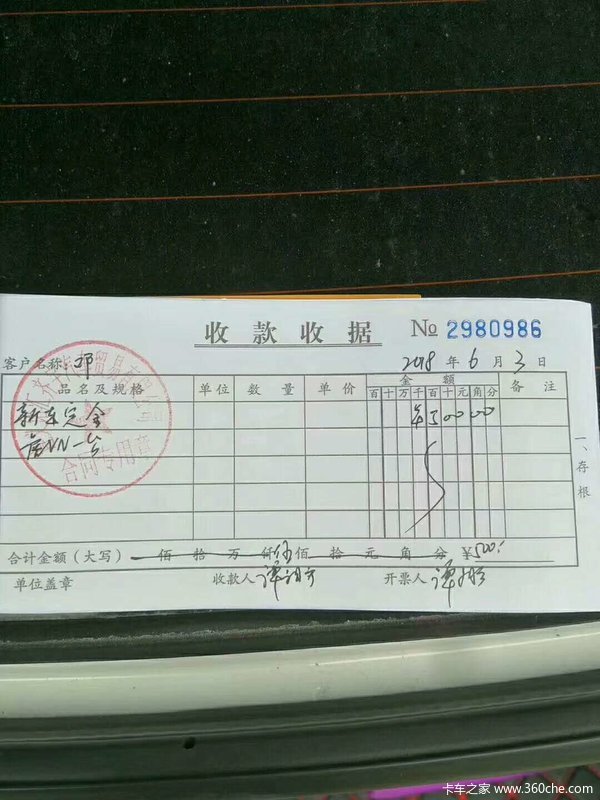 收款收据 № 2980986
客户名称:邓 2018年6月3日
品名及规格 单位 数量 单价 金额 备注
百十万千百十元角分
新车定金 ¥50000
一台
合同专用章
一、存根
合计金额(大写) 佰 拾 万 仟伍佰 拾 元 角 分 ¥500.-
单位盖章 收款人 谭 开票人 谭
卡车之家 www.360che.com